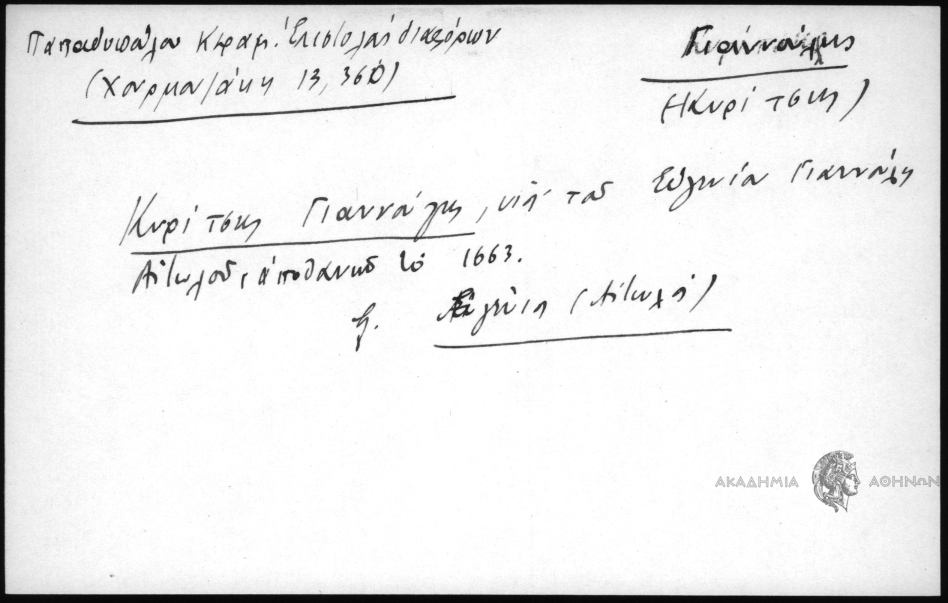 Παπαδοπούλου Κεραμ. Ἐπιστολαί διαφόρων
(Χουρμουζάκης 13, 360)
Γιαννούλης
(Κυρίτσης)
Κυρίτσης Γιαννούλης, υἱός τοῦ Εὐγενίου Γιαννούλη
Αἰτωλοῦ, ἀποθανών τό 1663.
Εὐγένιος (Αἰτωλός)
ΑΚΑΔΗΜΙΑ ΑΘΗΝΩΝ